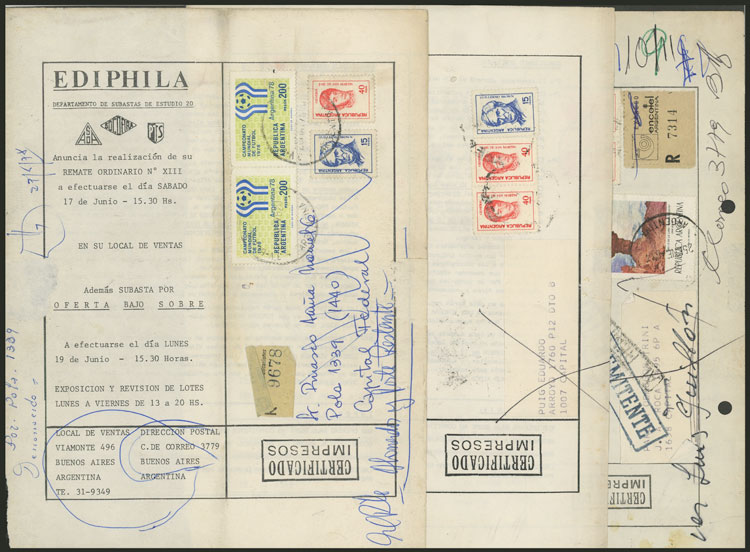 EDIPHILA
DEPARTAMENTO DE SUBASTAS DE ESTUDIO 2D
Anuncia la realización de su
REMATE ORDINARIO N° XIII
a efectuarse el día SABADO
17 de Junio - 15.30 Hs.
EN SU LOCAL DE VENTAS
Además SUBASTA POR
OFERTA BAJO SOBRE
A efectuarse el día LUNES
19 de Junio - 15.30 Horas.
EXPOSICION Y REVISION DE LOTES
LUNES A VIERNES DE 13 a 20 HS.
LOCAL DE VENTAS
VIAMONTE 496
BUENOS AIRES
ARGENTINA
TE. 31-9349
DIRECCION POSTAL
C.DE CORREO 3779
BUENOS AIRES
ARGENTINA
Por Pola. 1339
CAMPEONATO
MUNDIAL
DE FUTBOL
1978
Argentina '78
PESOS 200
REPUBLICA
ARGENTINA
CAMPEONATO
MUNDIAL
DE FUTBOL
1978
Argentina '78
PESOS 200
REPUBLICA
ARGENTINA
40
REPUBLICA ARGENTINA
15
REPUBLICA ARGENTINA
K 9678
Sr. Dinasio María Marcelo
Pola 1339 (1440)
Capital Federal
CERTIFICADO
IMPRESOS
15
REPUBLICA ARGENTINA
40
REPUBLICA ARGENTINA
40
REPUBLICA ARGENTINA
PUIG EDUARDO
ARROYO 1760 P12 DTO B
1007 CAPITAL
CERTIFICADO
IMPRESOS
encotel
R 7314
REPUBLICA ARGENTINA
REMITENTE
Correo 3779
CERTIFICADO
IMPRESOS